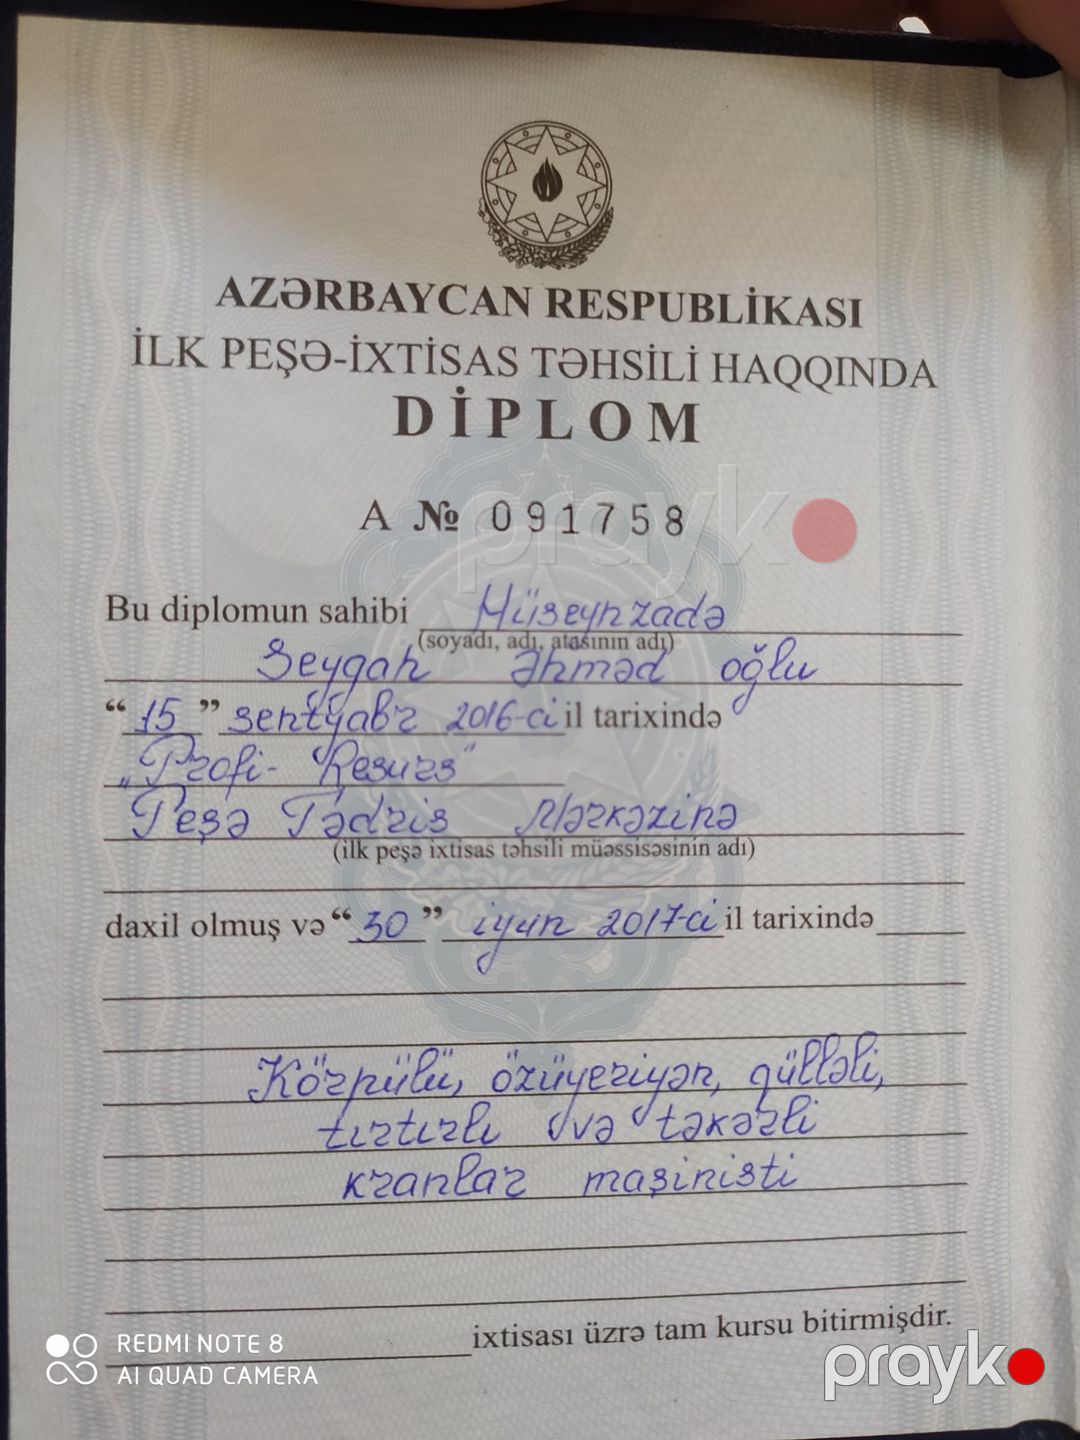 AZƏRBAYCAN RESPUBLİKASI
İLK PEŞƏ-İXTİSAS TƏHSİLİ HAQQINDA
DİPLOM
A № 091758
prayk
Bu diplomun sahibi Hüseynzadə
(soyadı, adı, atasının adı)
Seygah Əhməd oğlu
“15” sentyabr 2016-ci il tarixində
„Profi- Resurs“
Peşə Tədris Mərkəzinə
(ilk peşə ixtisas təhsili müəssisəsinin adı)
daxil olmuş və “30” iyun 2017-ci il tarixində
Körpülü, özüyeriyən, qülləli,
tırtırlı və təkərli
kranlar maşinisti
ixtisası üzrə tam kursu bitirmişdir.
REDMI NOTE 8
AI QUAD CAMERA
prayk